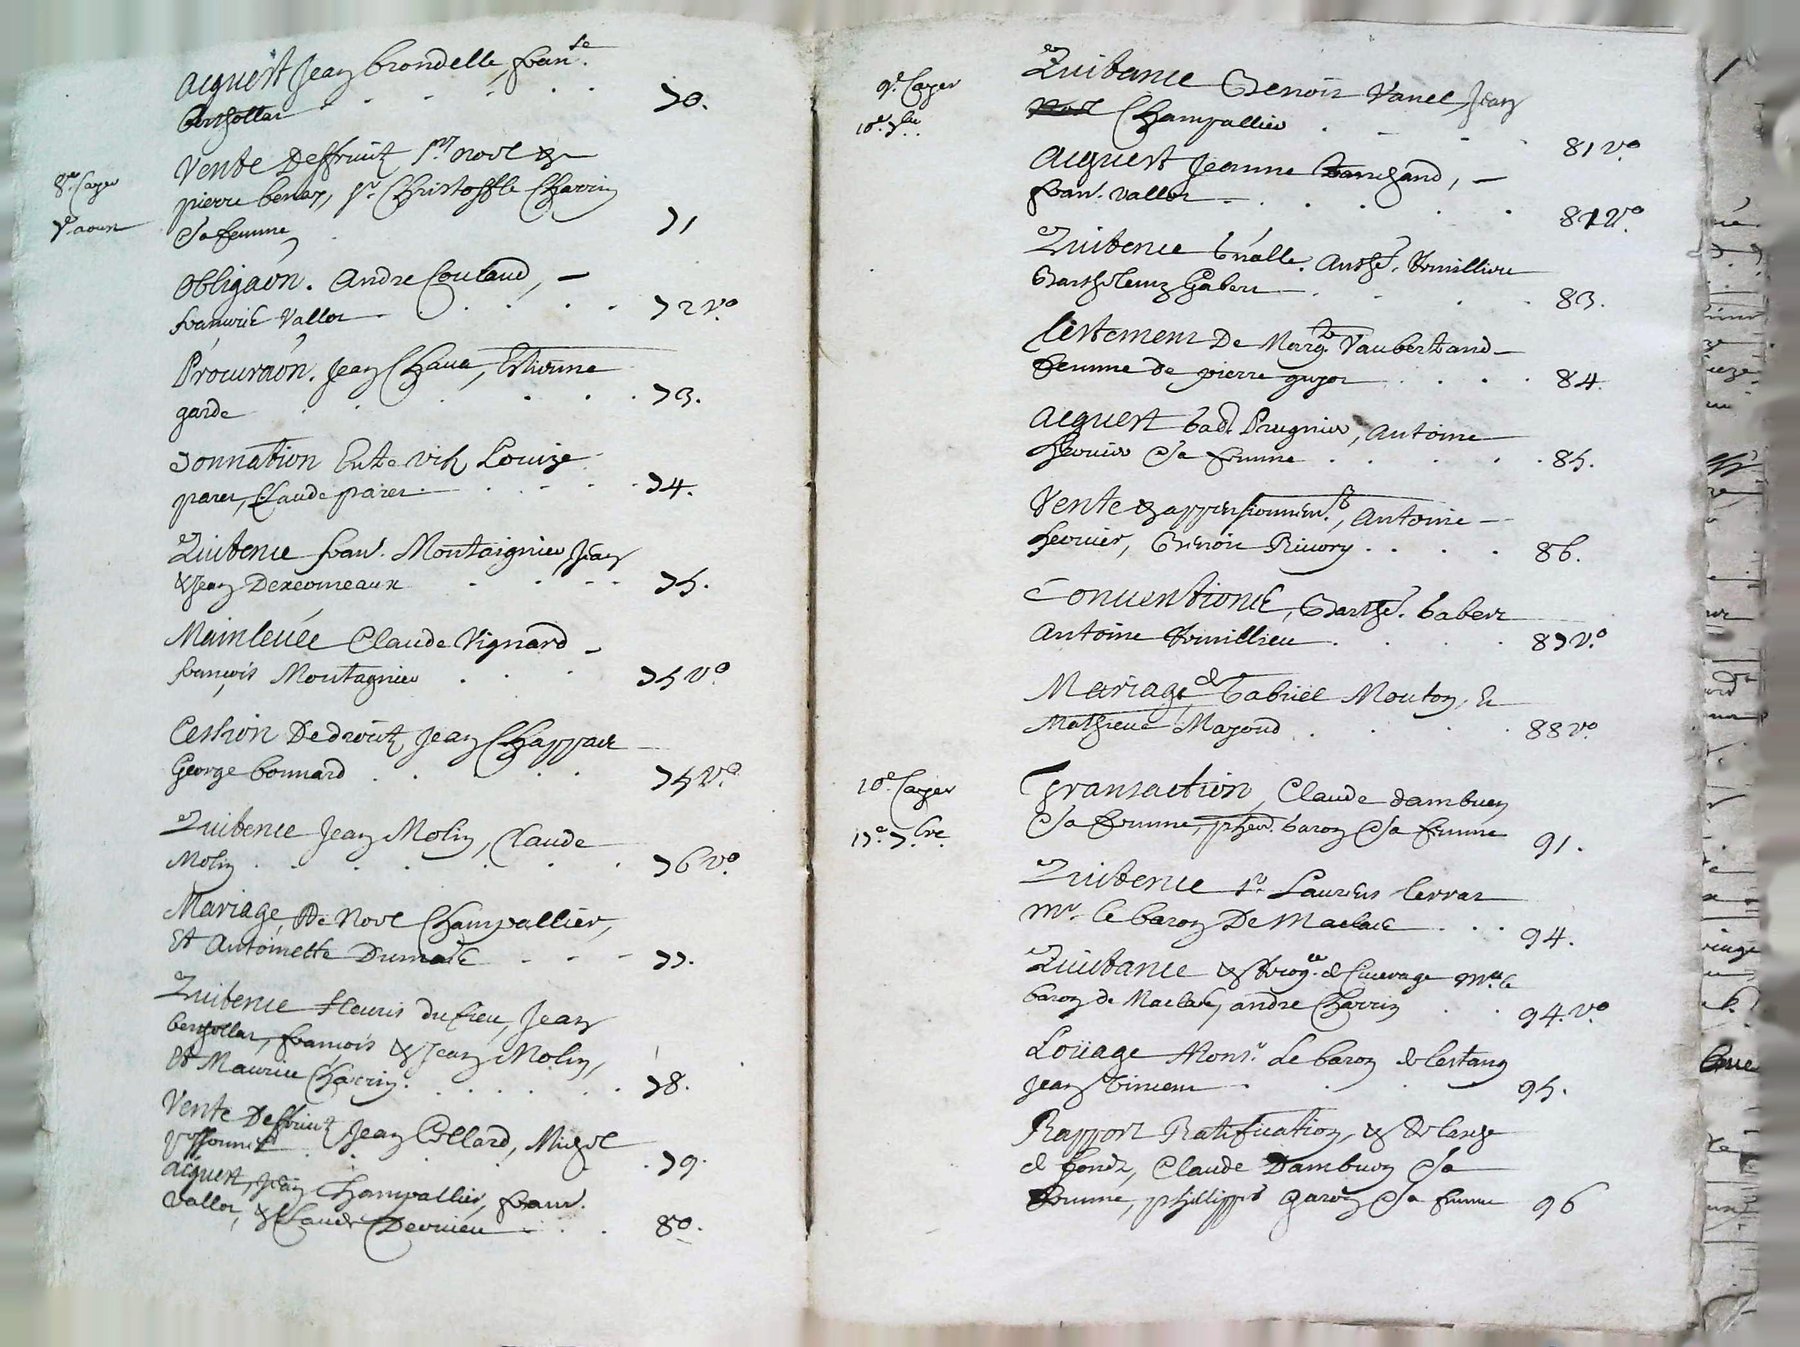 acquest Jean brondelle, fran.se
berthollat . . . . . 70.
8e Cayer
Vente Deffruitz sr noel &
pierre benay, sr Christoffle Charrin
aoust
& sa femme . 71
Obligaon. Andre Coutaud, —
francoise Vallot . . . . 72 vo.
Procuraon. Jean Chana, Estienne
garde . . . . . 73.
Donnation Entre vifs Louize
paret, Claude paret . . . . 74.
Quitence fran. Montaignier Jean
& Jean Dexcomeaux . . . . 75.
Mainlevée Claude Vignard —
françois Montagnier . . . 75 vo.
Cession Dedroitz Jean Chappard
George bonnard . . . . 75 vo.
Quitence Jean Molin, Claude
Molin . . . . . 76 vo.
Mariage, De Noel Champallier,
Et Antoinette Dumas . . . 77.
Quitence fleuris dufieu, Jean
berthollat, françois & Jean Molin,
Et Maurice Charrin . . . . . 78.
Vente Deffruitz Jean Collard, Michel
. . . . 79.
acquest, Jean Champallier, fran.
Vallot, & Claude Dervieu . . . 80.
9e Cayer
Quitance Benoist Vanel, Jean
10e 7bre
Champallier . . . . 81 vo.
Acquest Jeanne, —
fran. vallot . . . . . 81 vo.
Quitence
Barthelemy Gabert . . . . 83.
Testement De Marg.te Vaubertrand
femme de pierre guyot . . . . 84.
Acquest bad. Prugnier, Antoine
fervier & sa femme . . . . . 85.
Vente & appensionnem.t, Antoine —
fervier, Benoit Rivory . . . . 86.
Conventions, Barthe. Gabert
Antoine . . . . 87 vo.
Mariage de Gabriel Mouton, Et
Mathieue Mazoud . . . . 88 vo.
10e Cayer
Transaction, Claude dambuen
17e 7bre.
& sa femme, phew. baron & sa femme 91.
Quitence sr Laurens terrat
Mr. le baron De Maclas . . . 94.
Quitance & prog.on de Cuvrage Mr le
baron de Maclas, andre Charrin . . 94. vo
Loüage Mons.r Le baron de lestang
Jean Vincent . . . . 95.
Rapport Ratification, & delaise
de fondz, Claude Dambuen & sa
femme, phillippe baron & sa femme 96